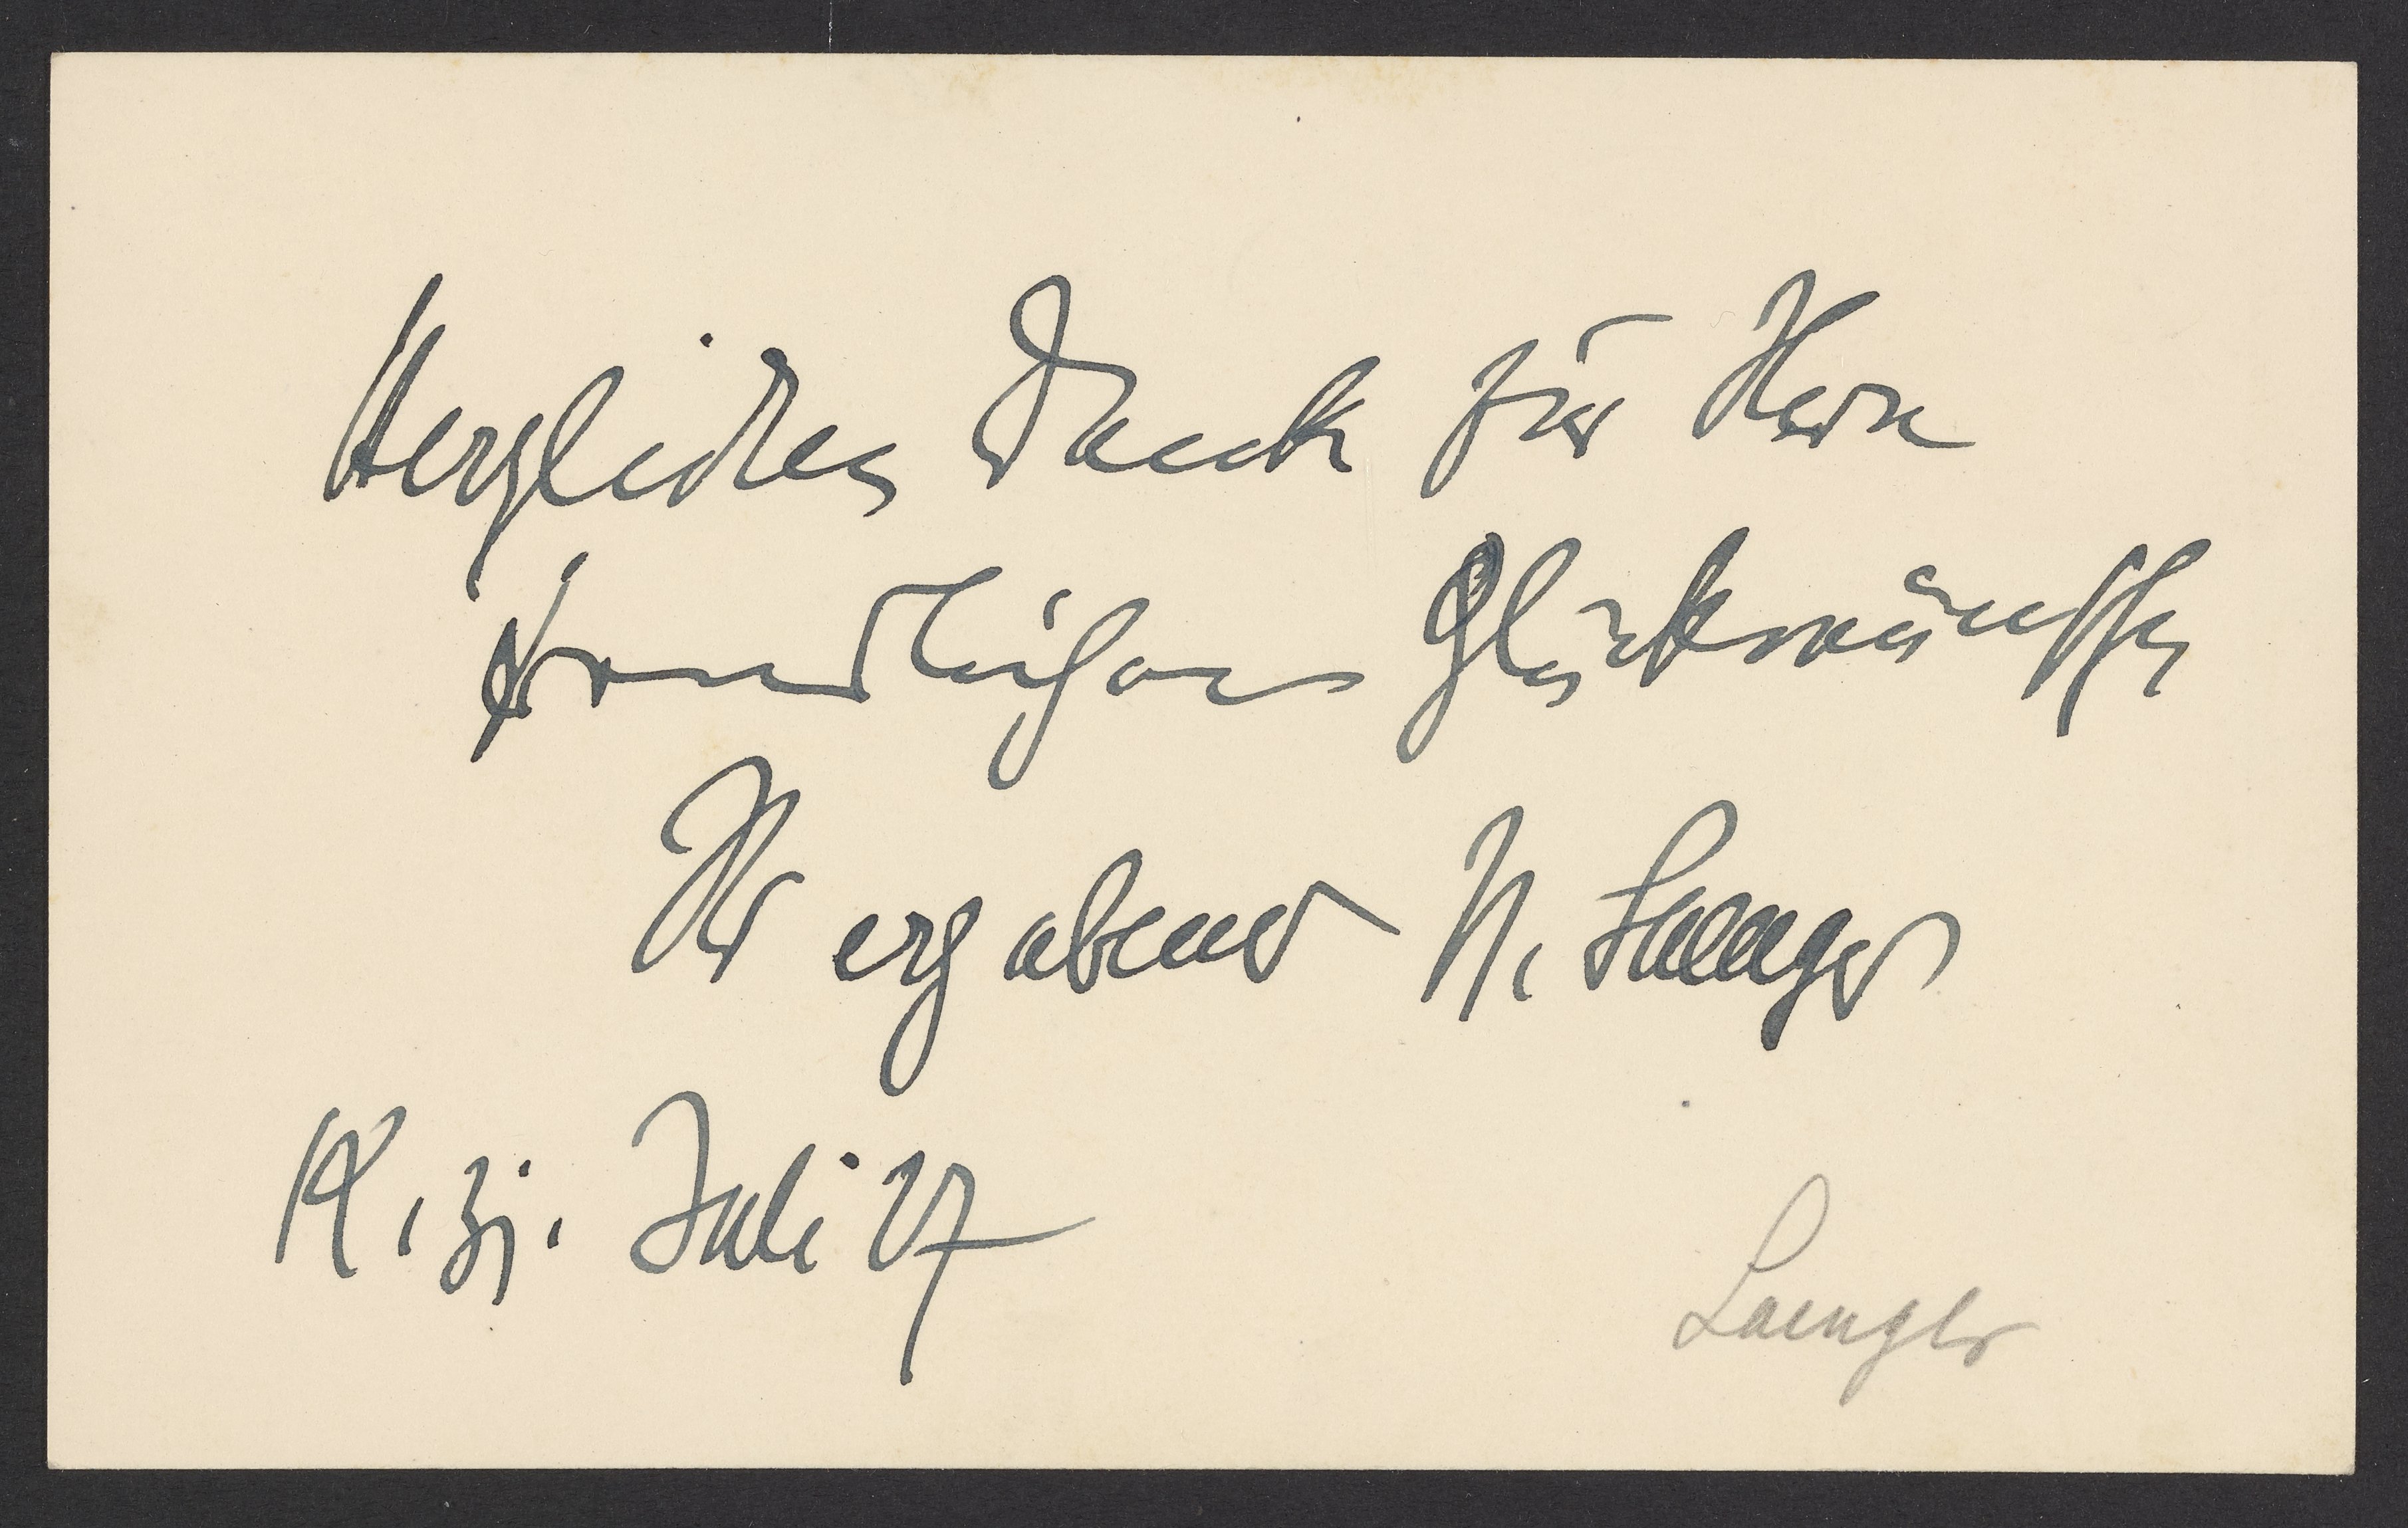 Herzlichen Dank für Ihre
freundlichen Glückwünsche
Ihr ergebener M. Laeuger
K. Juli 27
Laeuger